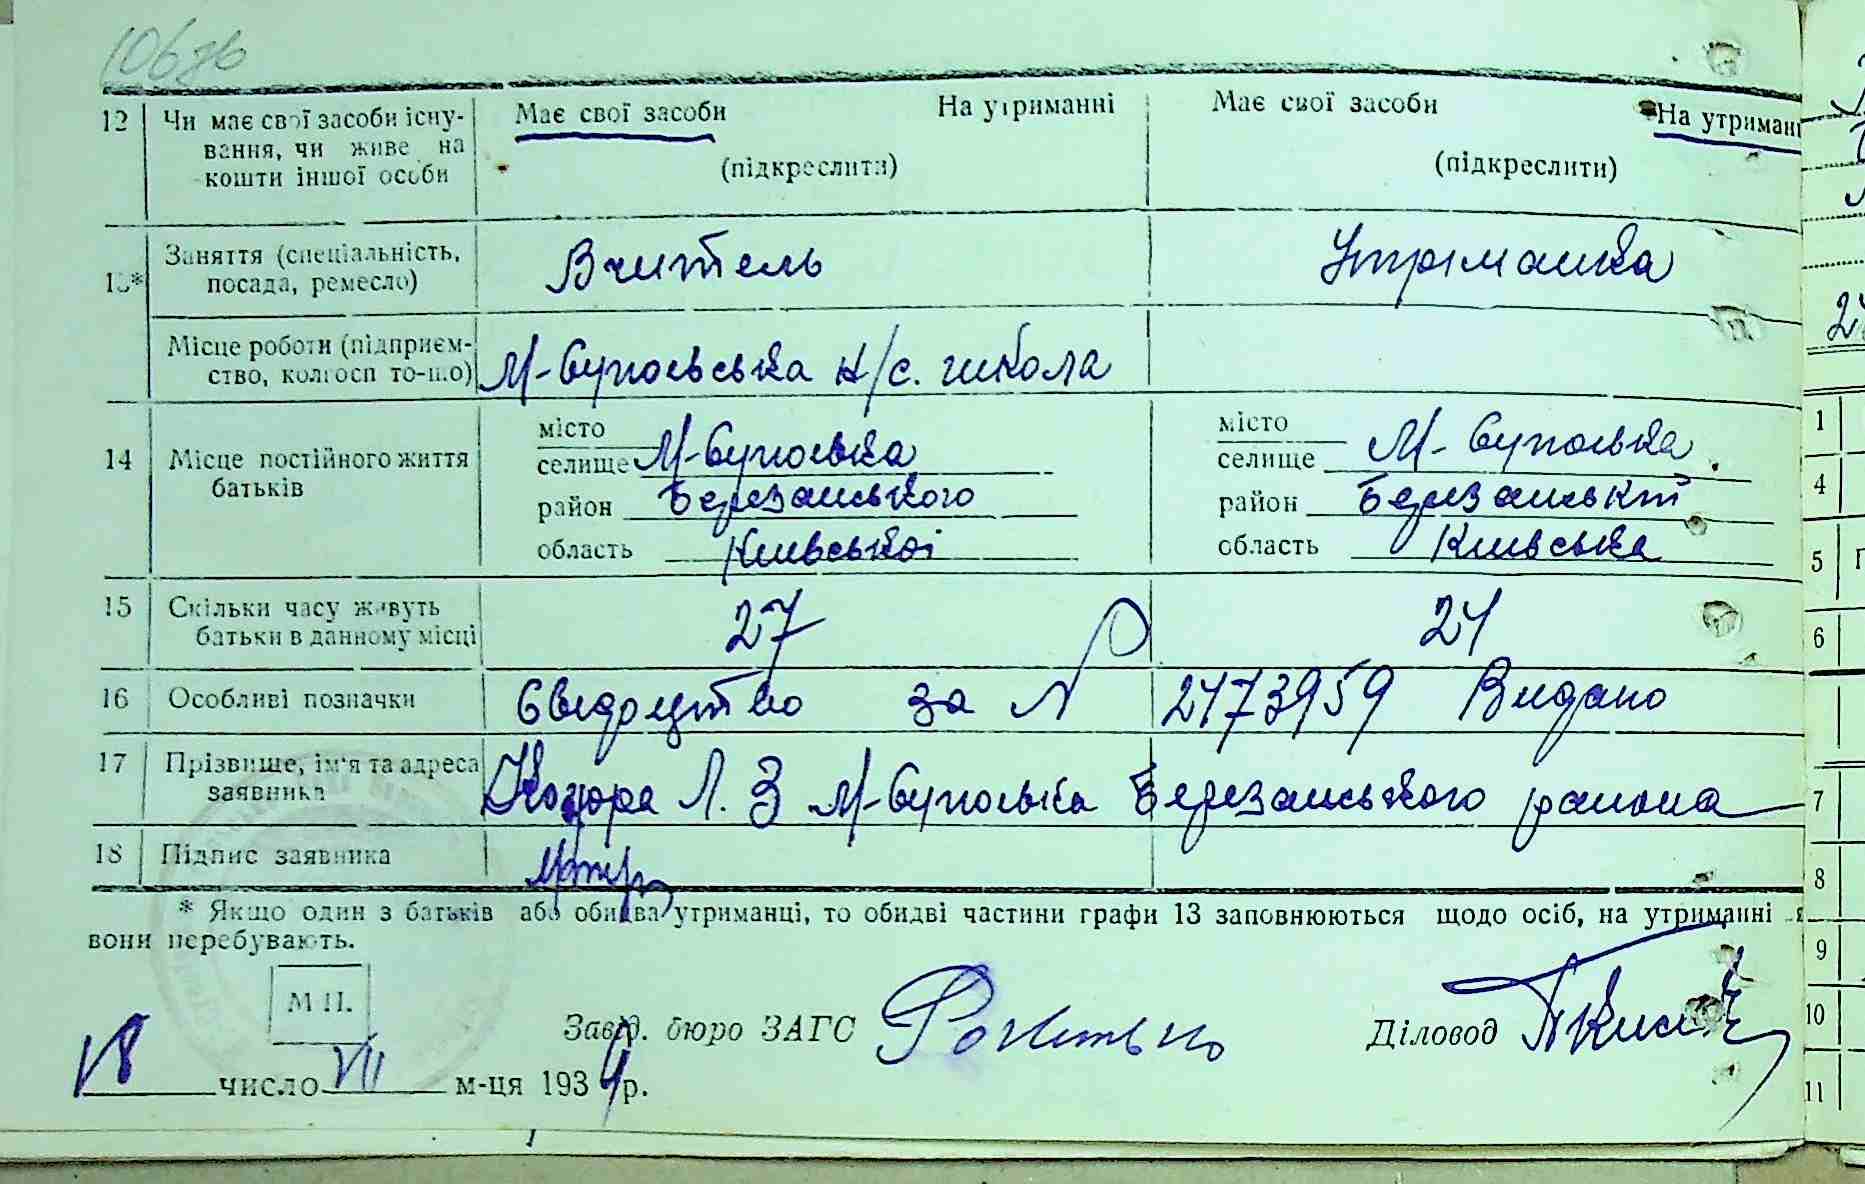 106зв
12 Чи має свої засоби існу- Має свої засоби На утриманні Має свої засоби На утриманні
вання, чи живе на
кошти іншої особи (підкреслити) (підкреслити)
13* Заняття (спеціальність, Вчитель Утриманка
посада, ремесло)
Місце роботи (підприєм- М-Супоєвська н/с. школа
ство, колгосп то-що)
14 Місце постійного життя місто місто
батьків селище М-Супоєвка селище М-Супоєвка
район Березанського район Березанський
область Київської область Київська
15 Скільки часу живуть 27 24
батьки в данному місці
16 Особливі позначки Свидоцтво за № 2473959 Видано
17 Прізвище, ім'я та адреса Коцюра Л. З М-Супоєвка Березанського района
заявника
18 Підпис заявника
* Якщо один з батьків або обидва утриманці, то обидві частини графи 13 заповнюються щодо осіб, на утриманні
вони перебувають.
М П.
Завід. бюро ЗАГС Діловод
18 число VII м-ця 1939 р.
1
4
5
6
7
8
9
10
11